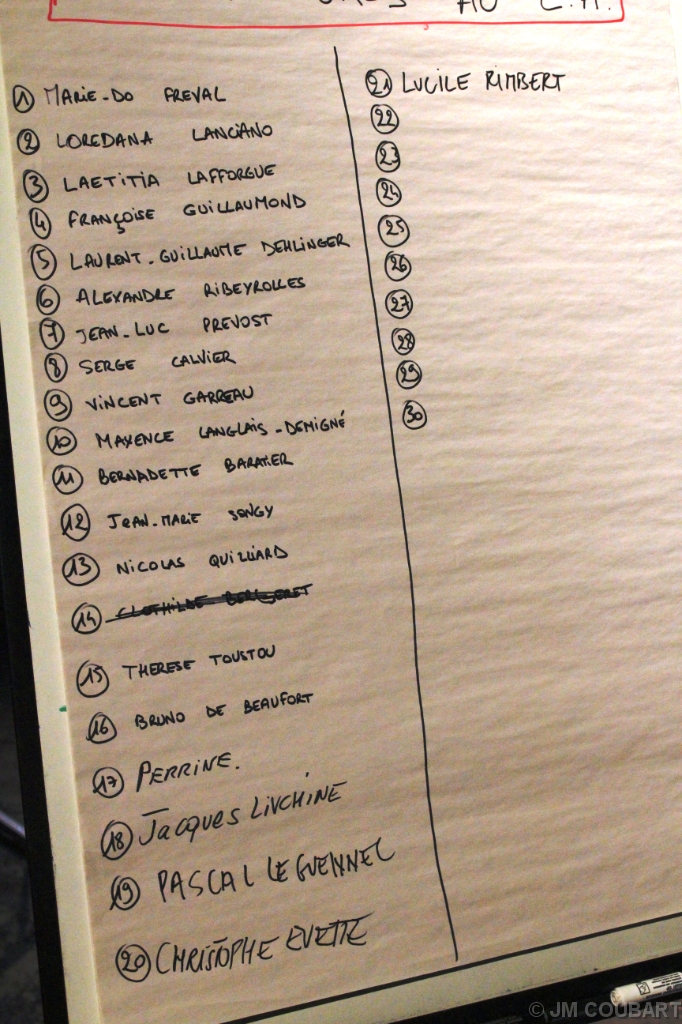 AU C.A.
1 MARIE-DO FREVAL
2 LOREDANA LANCIANO
3 LAETITIA LAFFORGUE
4 FRANÇOISE GUILLAUMOND
5 LAURENT-GUILLAUME DEHLINGER
6 ALEXANDRE RIBEYROLLES
7 JEAN-LUC PREVOST
8 SERGE CALVIER
9 VINCENT GARREAU
10 MAXENCE LANGLAIS-DEMIGNÉ
11 BERNADETTE BARATIER
12 JEAN-MARIE SONGY
13 NICOLAS QUILLIARD
14 CLOTHILDE BERGERET
15 THERESE TOUSTOU
16 BRUNO DE BEAUFORT
17 PERRINE.
18 Jacques LIVCHINE
19 PASCAL LE GUENNEC
20 CHRISTOPHE EVETTE
21 LUCILE RIMBERT
22
23
24
25
26
27
28
29
30
© JM COUBART